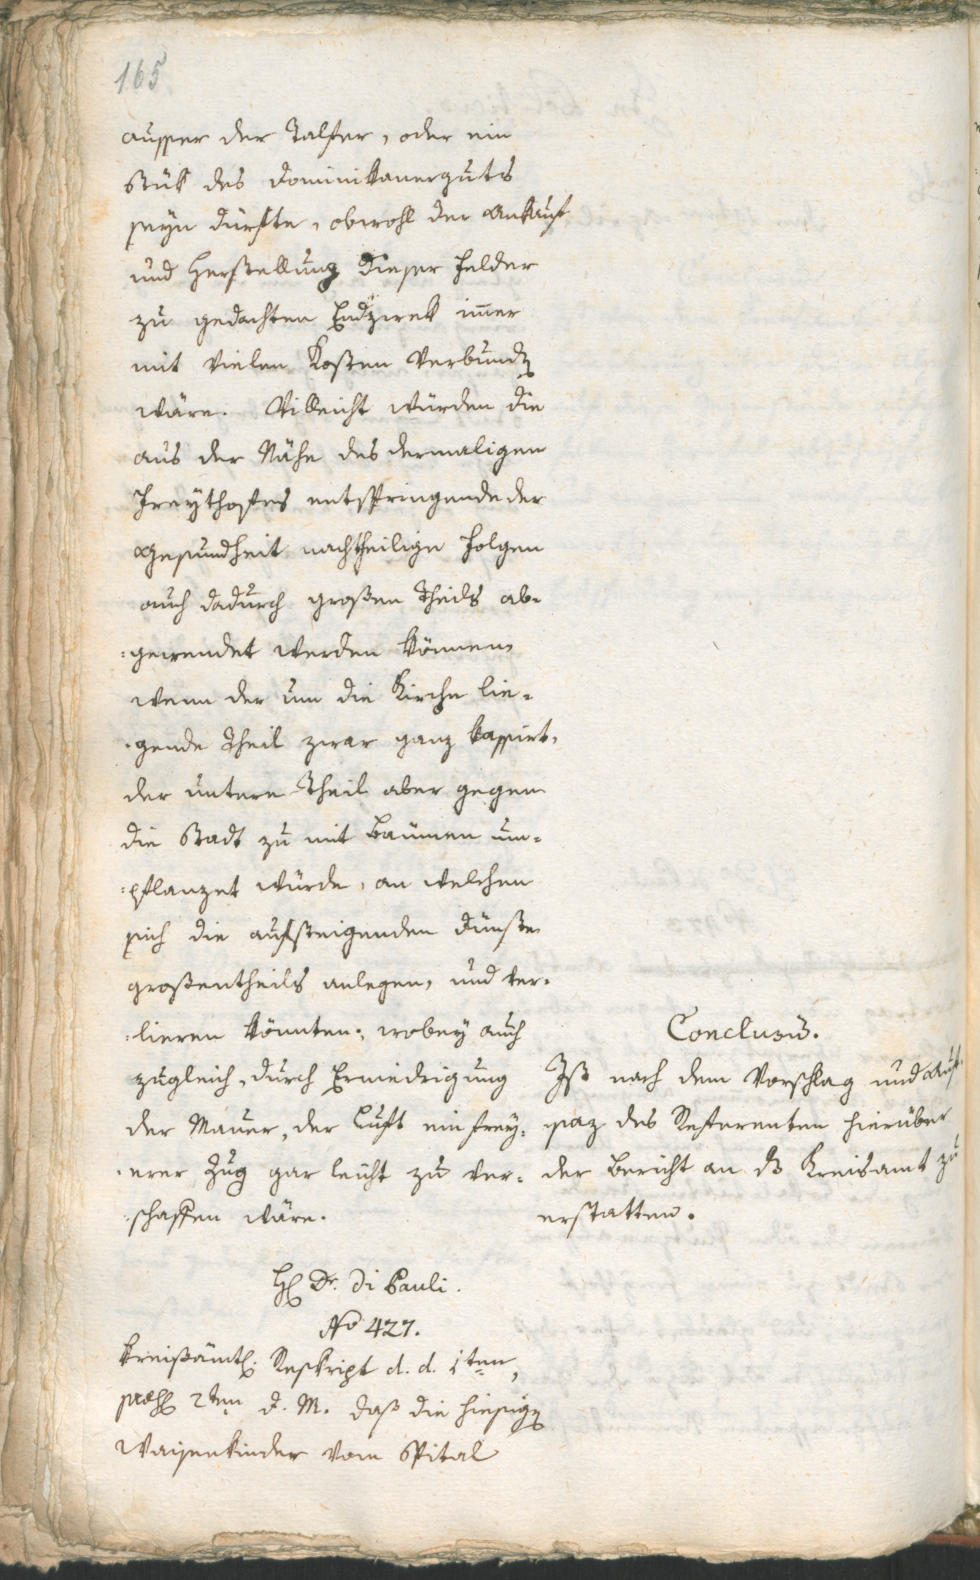 165
ausser der Talfer, oder ein
Stük des Dominikanerguts
seyn dürfte, obwohl der Ankauf
und Herstellung dieser Felder
zu gedachten Endzwek im̅er
mit vielen Kosten verbunden
wäre. Villeicht würden die
aus der Nähe des dermaligen
Freythofes entspringende der
Gesundheit nachtheilige Folgen
auch dadurch großen Theils ab-
:gewendet werden können,
wenn der um die Kirche lie-
:gende Theil zwar ganz kassirt,
der untere Theil aber gegen
die Stadt zu mit Bäumen um-
:pflanzet würde, an welchen
sich die aufsteigenden Dünste
großentheils anlegen, und ver-
:lieren könnten; wobey auch
zugleich, durch Erniedrigung
der Mauer, der Luft ein frey-
:erer Zug gar leicht zu ver-
:schaffen wäre.
Conclusū.
Ist nach dem Vorschlag und Auf-
saz des Referenten hierüber
der Bericht an das Kreisamt zu
erstatten.
H. Dr. Di Pauli.
No 427.
Kreißämtl. Reskript d. d. 1ten,
2ten d. M. daß die hiesige
Waisenkinder vom Spital